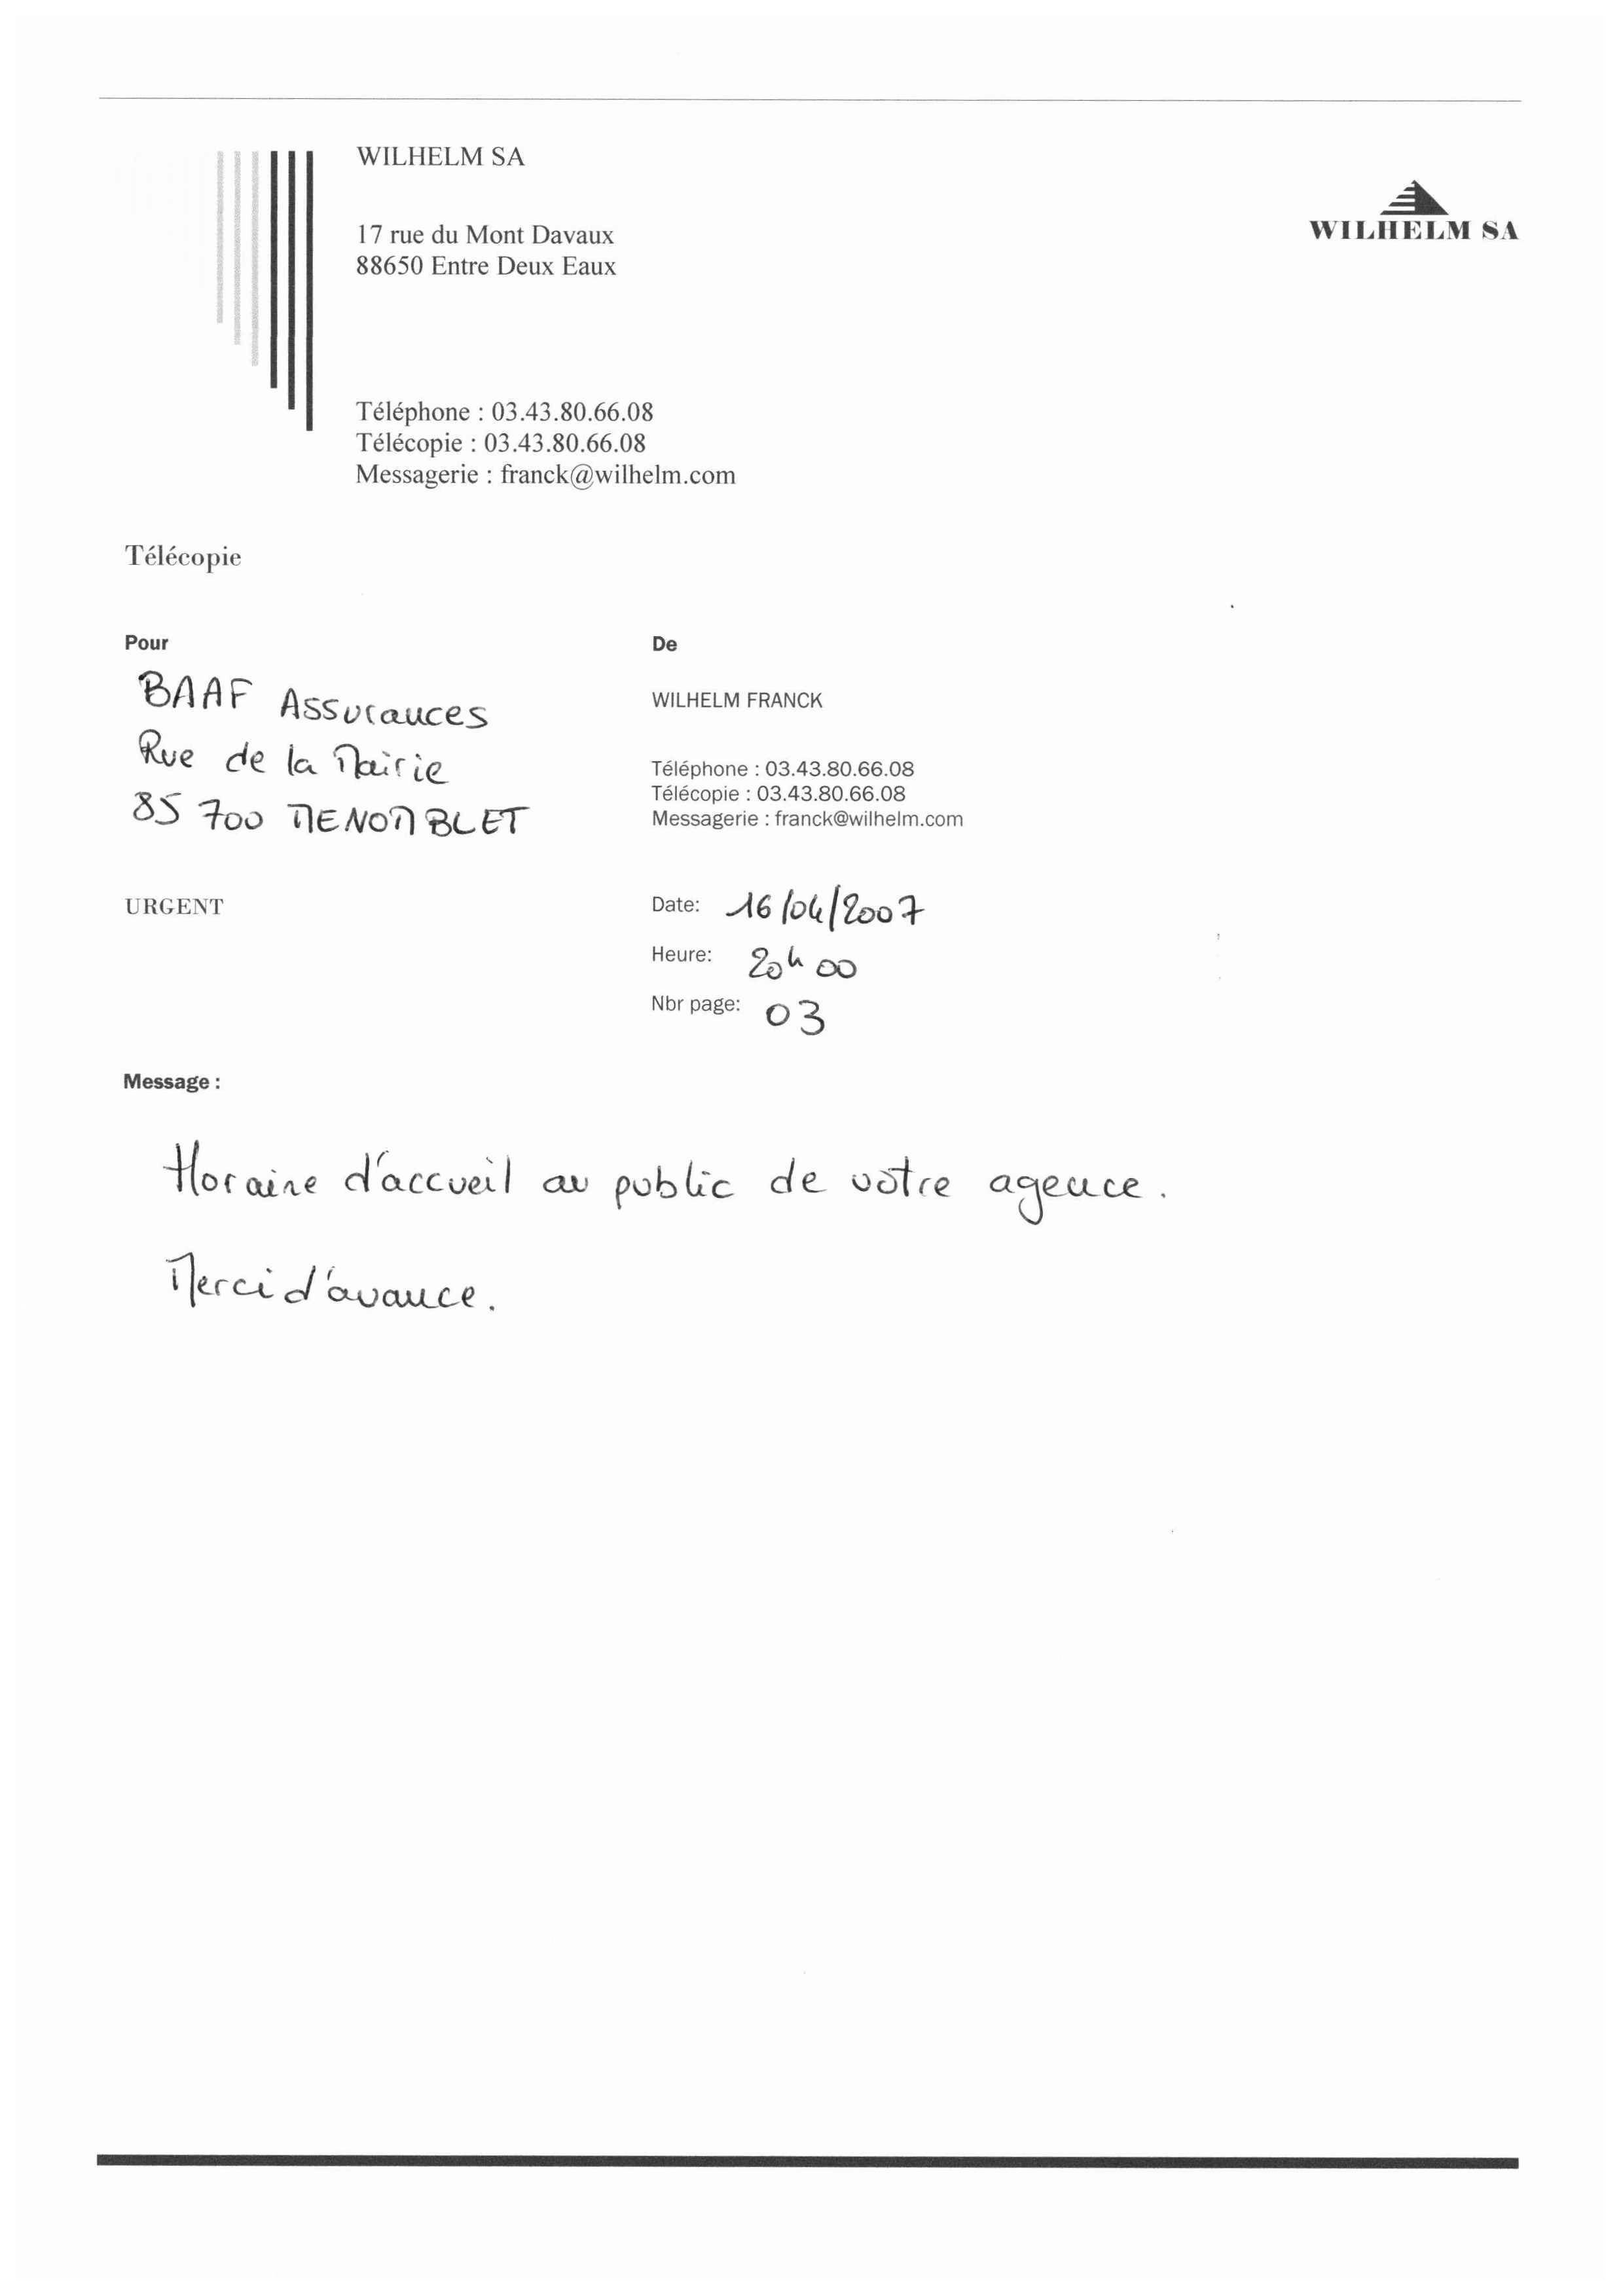 WILHELM SA
WILHELM SA
17 rue du Mont Davaux
88650 Entre Deux Eaux
Téléphone : 03.43.80.66.08
Télécopie : 03.43.80.66.08
Messagerie : franck@wilhelm.com
Télécopie
Pour
BAAF Assurances
Rue de la Mairie
85 700 MENOMBLET
De
WILHELM FRANCK
Téléphone : 03.43.80.66.08
Télécopie : 03.43.80.66.08
Messagerie : franck@wilhelm.com
URGENT
Date: 16/04/2007
Heure: 20h00
Nbr page: 03
Message :
Horaire d'accueil au public de vôtre agence.
Merci d'avance.